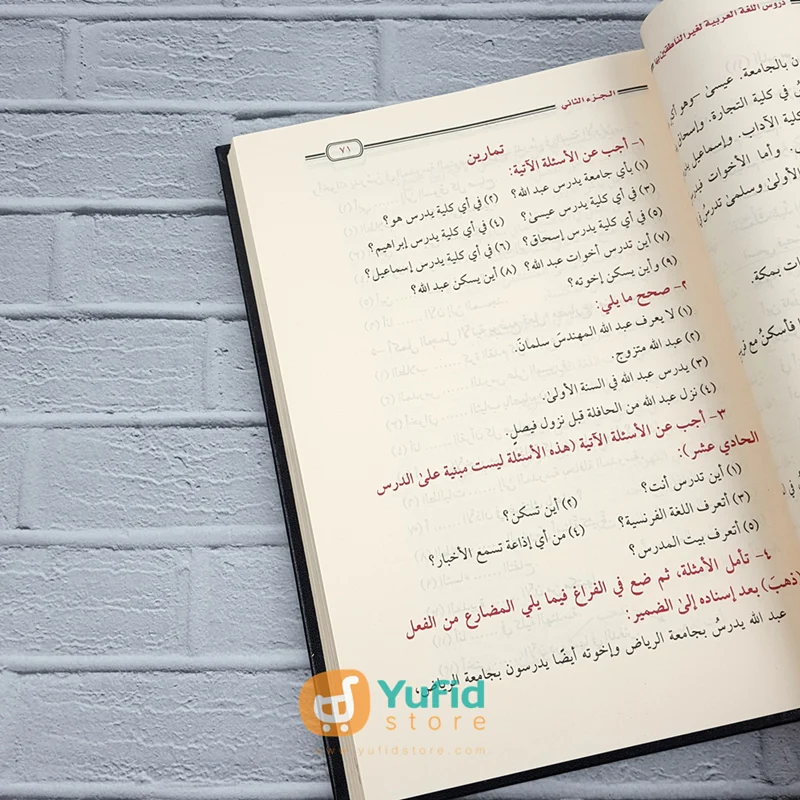 دروس اللغة العربية لغير الناطقين بها
ون بالجامعة. عيسى -وهو أي
س في كلية التجارة. وإسحاق
كلية الآداب. وإسماعيل يدر
وأما الأخوات فيدر
الأولى وسلمى تدرس
ات بمكة.
فأسكنُ مع
الجزء الثاني
٧١
تمارين
١- أجب عن الأسئلة الآتية:
(١) بأي جامعة يدرس عبد الله؟ (٢) في أي كلية يدرس هو؟
(٣) في أي كلية يدرس عيسى؟ (٤) في أي كلية يدرس إبراهيم؟
(٥) في أي كلية يدرس إسحاق؟ (٦) في أي كلية يدرس إسماعيل؟
(٧) أين تدرس أخوات عبد الله؟ (٨) أين يسكن عبد الله؟
(٩) وأين يسكن إخوته؟
٢- صحح ما يلي:
(١) لا يعرف عبد الله المهندسَ سلمانَ.
(٢) عبد الله متزوج.
(٣) يدرس عبد الله في السنة الأولى.
(٤) نزل عبد الله من الحافلة قبل نزول فيصلٍ.
٣- أجب عن الأسئلة الآتية (هذه الأسئلة ليست مبنية على الدرس
الحادي عشر):
(١) أين تدرس أنت؟ (٢) أين تسكن؟
(٣) أتعرف اللغة الفرنسية؟ (٤) من أي إذاعة تسمع الأخبار؟
(٥) أتعرف بيت المدرس؟
٤- تأمل الأمثلة، ثم ضع في الفراغ فيما يلي المضارع من الفعل
(ذهبَ) بعد إسناده إلى الضمير:
عبد الله يدرسُ بجامعة الرياض وإخوته أيضًا يدرسون بجامعة الرياض،
YuFid
store
www.yufidstore.com